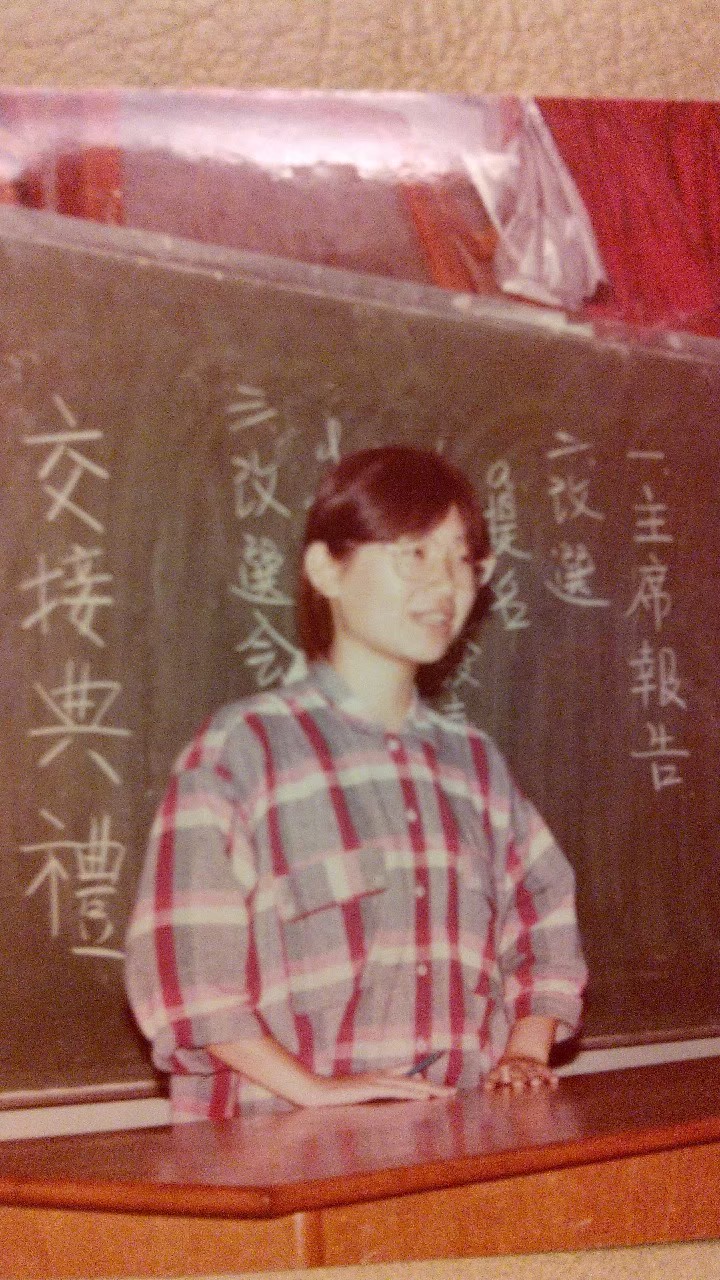 一、主席報告
二、改選
三、改選会
交接典禮